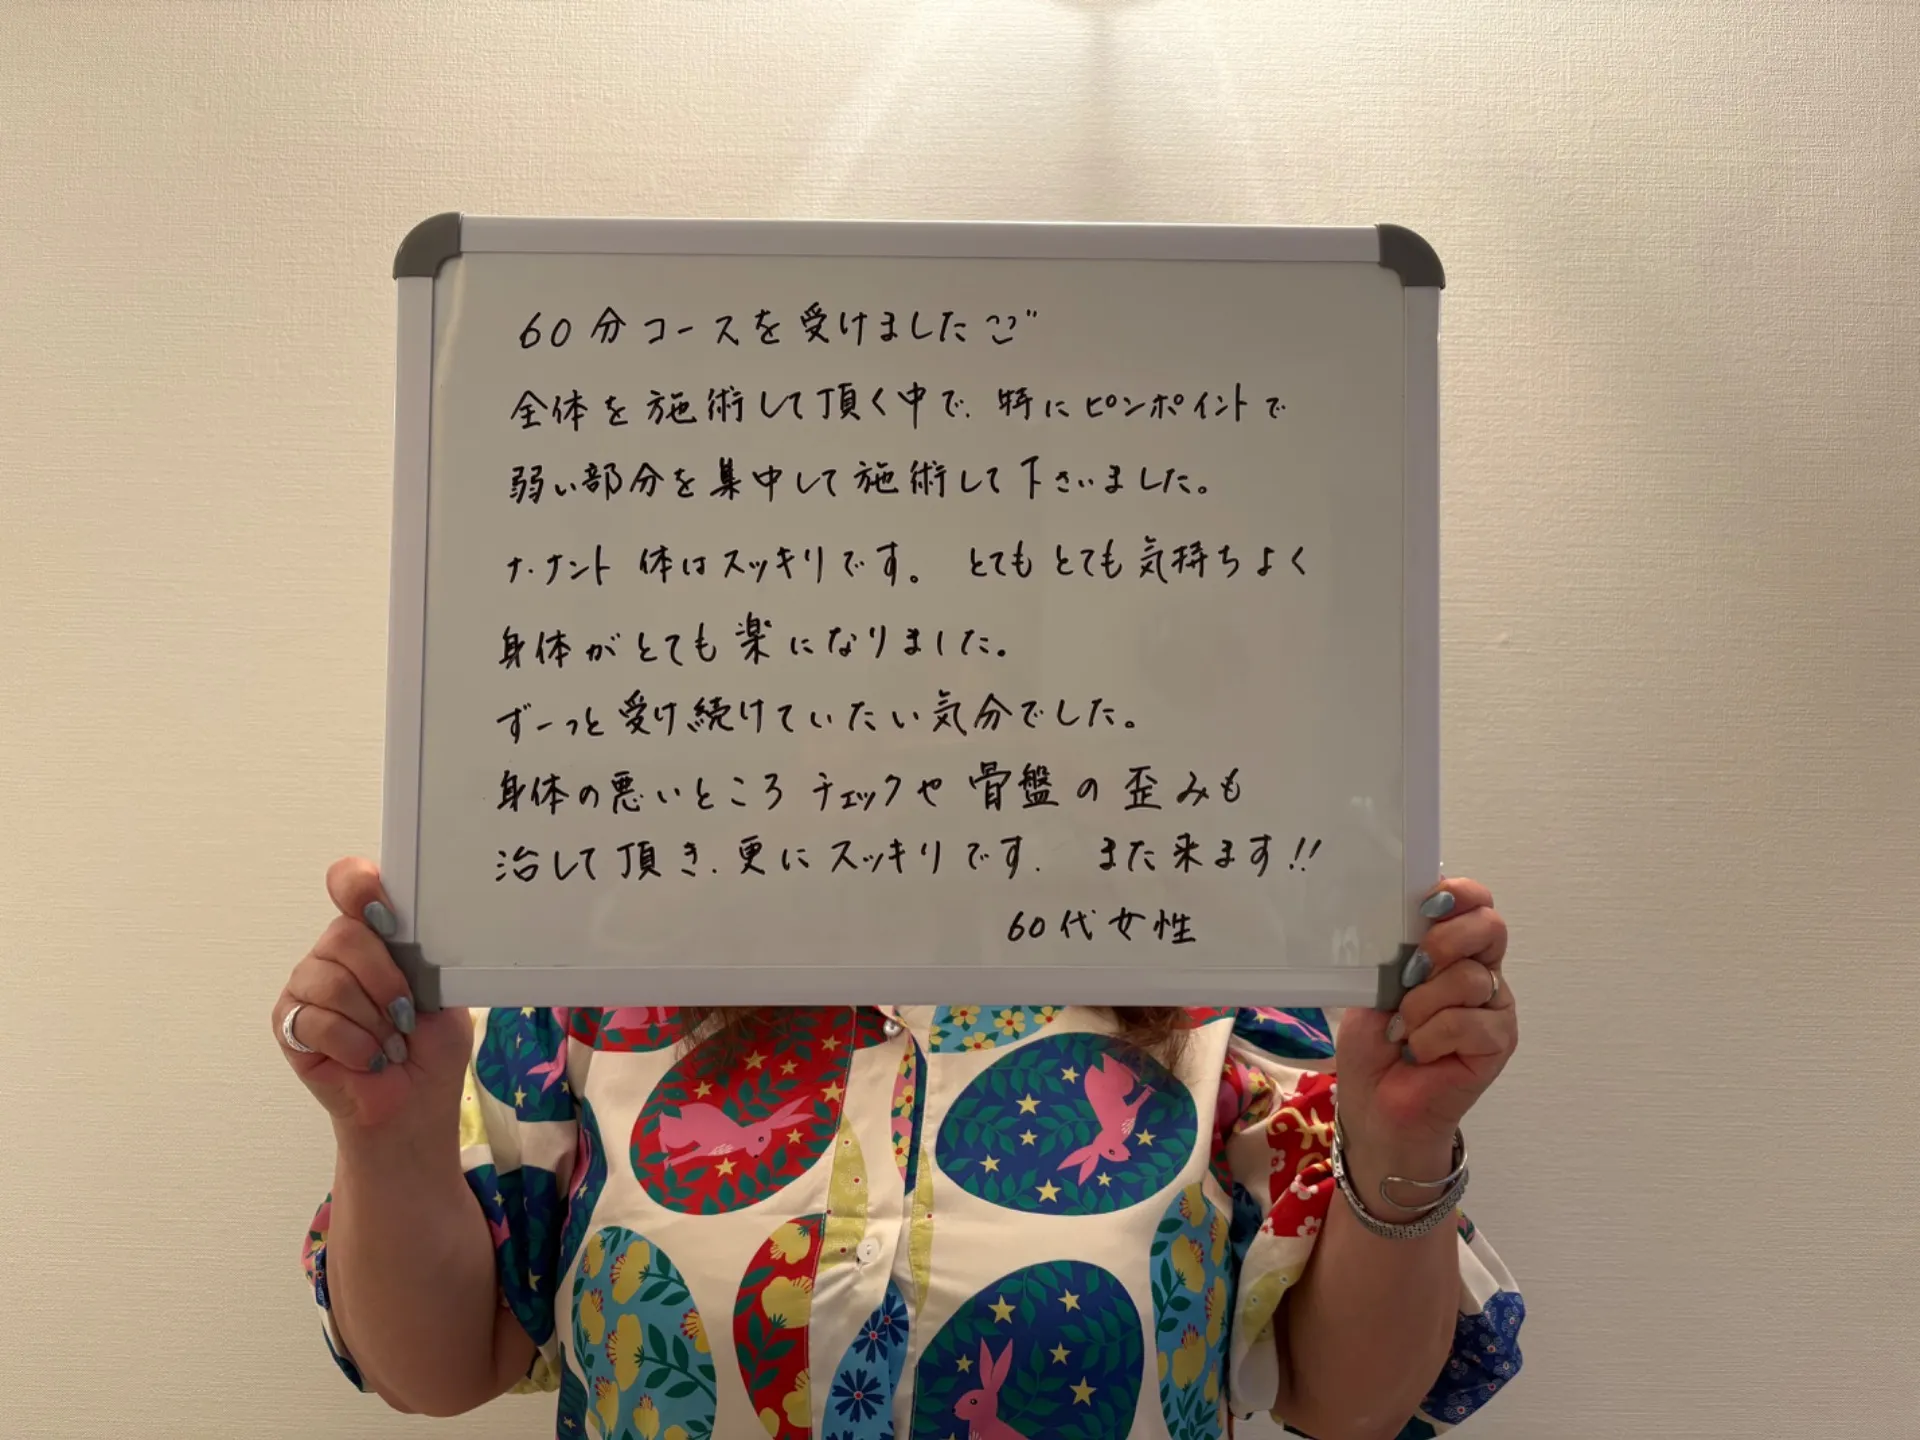 60分コースを受けましたここ"
全体を施術して頂く中で、特にピンポイントで
弱い部分を集中して施術して下さいました。
体はスッキリです。 とてもとても気持ちよく
身体がとても楽になりました。
ずーっと受け続けていたい気分でした。
身体の悪いところチェックや骨盤の歪みも
治して頂き、更にスッキリです. また来ます!!
60代女性